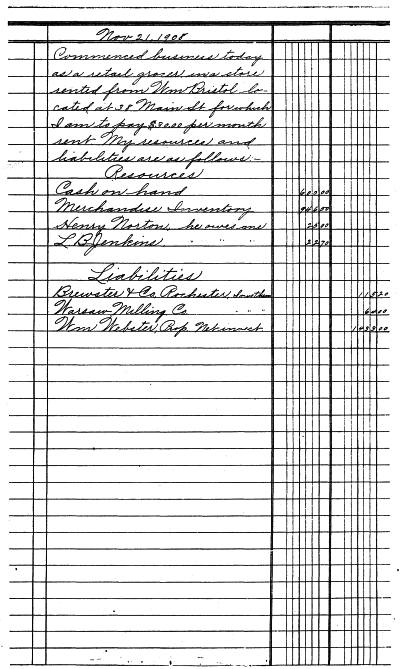 Nov 21, 1908
Commenced business today
as a retail grocer in a store
rented from Wm Bristol lo-
cated at 38 Main St for which
I am to pay $30.00 per month
rent My resources and
liabilities are as follows:-
Resources
Cash on hand 600 00
Merchandise Inventory
Henry Norton, he owes me
L B Jenkins " " " 22 70
Liabilities
Brewster & Co. Rochester, I owe them 115 20
Warsaw Milling Co " " "
Wm Webster, Prop. Net invest